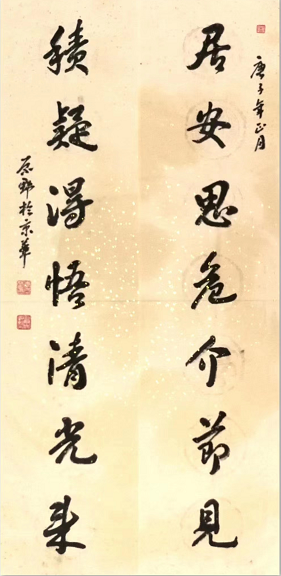 庚子年正月
居安思危介節見
積疑得悟清光来
於京華